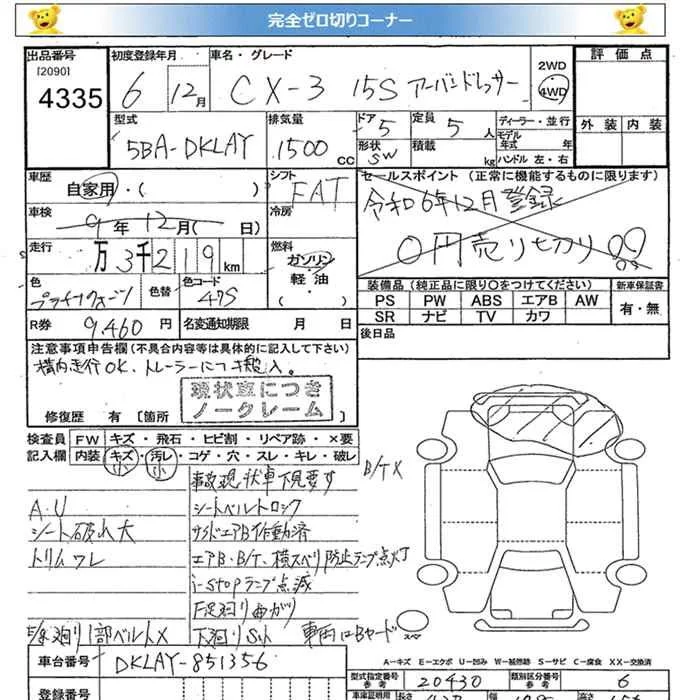 完全ゼロ切りコーナー
出品番号
[2090]
4335
初度登録年月
6 12月
車名・グレード
CX-3 15S アーバンドレッサー
2WD
4WD
評価点
外装 内装
型式
5BA-DKLAY
排気量
1500 cc
ドア 5
形状 SW
定員 5 人
積載 kg
ディーラー・並行
モデル年式 年
ハンドル 左・右
車歴
自家用・( )
シフト
FAT
セールスポイント (正常に機能するものに限ります)
令和6年12月登録
0円売り切り!!
車検
9年12月( 日)
冷房
走行
万3千219km
燃料
ガソリン
軽油
・( )
色
プラチナクォーツ
色替
色コード
47S
装備品 (純正品に限り○をつけてください)
PS PW ABS エアB AW
SR ナビ TV カワ
新車保証書
有・無
R券
9,460 円
名変通知期限 月 日
後日品
注意事項申告欄 (不具合内容等は具体的に記入して下さい)
構内走行OK、トレーラーにて搬入。
現状車につき
ノークレーム
修復歴 有 [箇所
検査員
記入欄
FW キズ・飛石・ヒビ割・リペア跡・×要
内装 キズ・汚レ・コゲ・穴・スレ・キレ・破レ
小 小
事故現状車下見要す
B/T X
A.U
シートベルトロック
シート破れ大
サイドエアB作動済
トリムワレ
エアB・B/T、横スベリ防止ランプ点灯
i-stopランプ点滅
F足廻り曲がり
1部ベルト×
下廻りSキズ
車両はBヤード
スペア
A-キズ E-エクボ U-凹み W-補修跡 S-サビ C-腐食 XX-交換済
車台番号
DKLAY-851356
型式指定番号
参考
20430
類別区分番号
参考
6
登録番号
車庫証明用
参考
長さ
幅
高さ